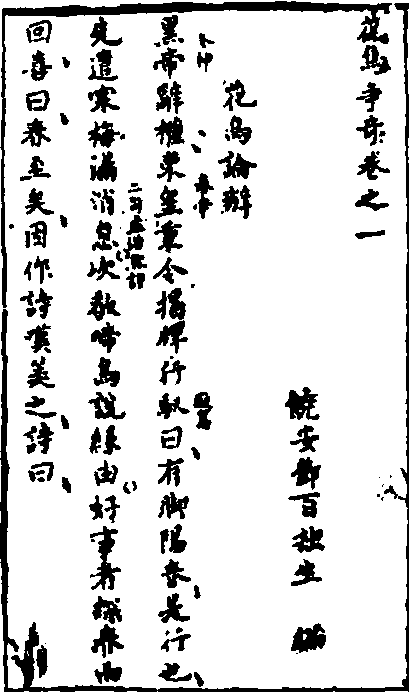 花鳥争竒卷之一
饒安鄧百拙生 編
花鳥論辯
黑帝辭權東皇秉令揭牌行馭曰有脚陽春是行也
先遣寒梅漏消息次教啼鳥説緣由好事者探春而
回喜曰春至矣因作詩嘆羨之詩曰